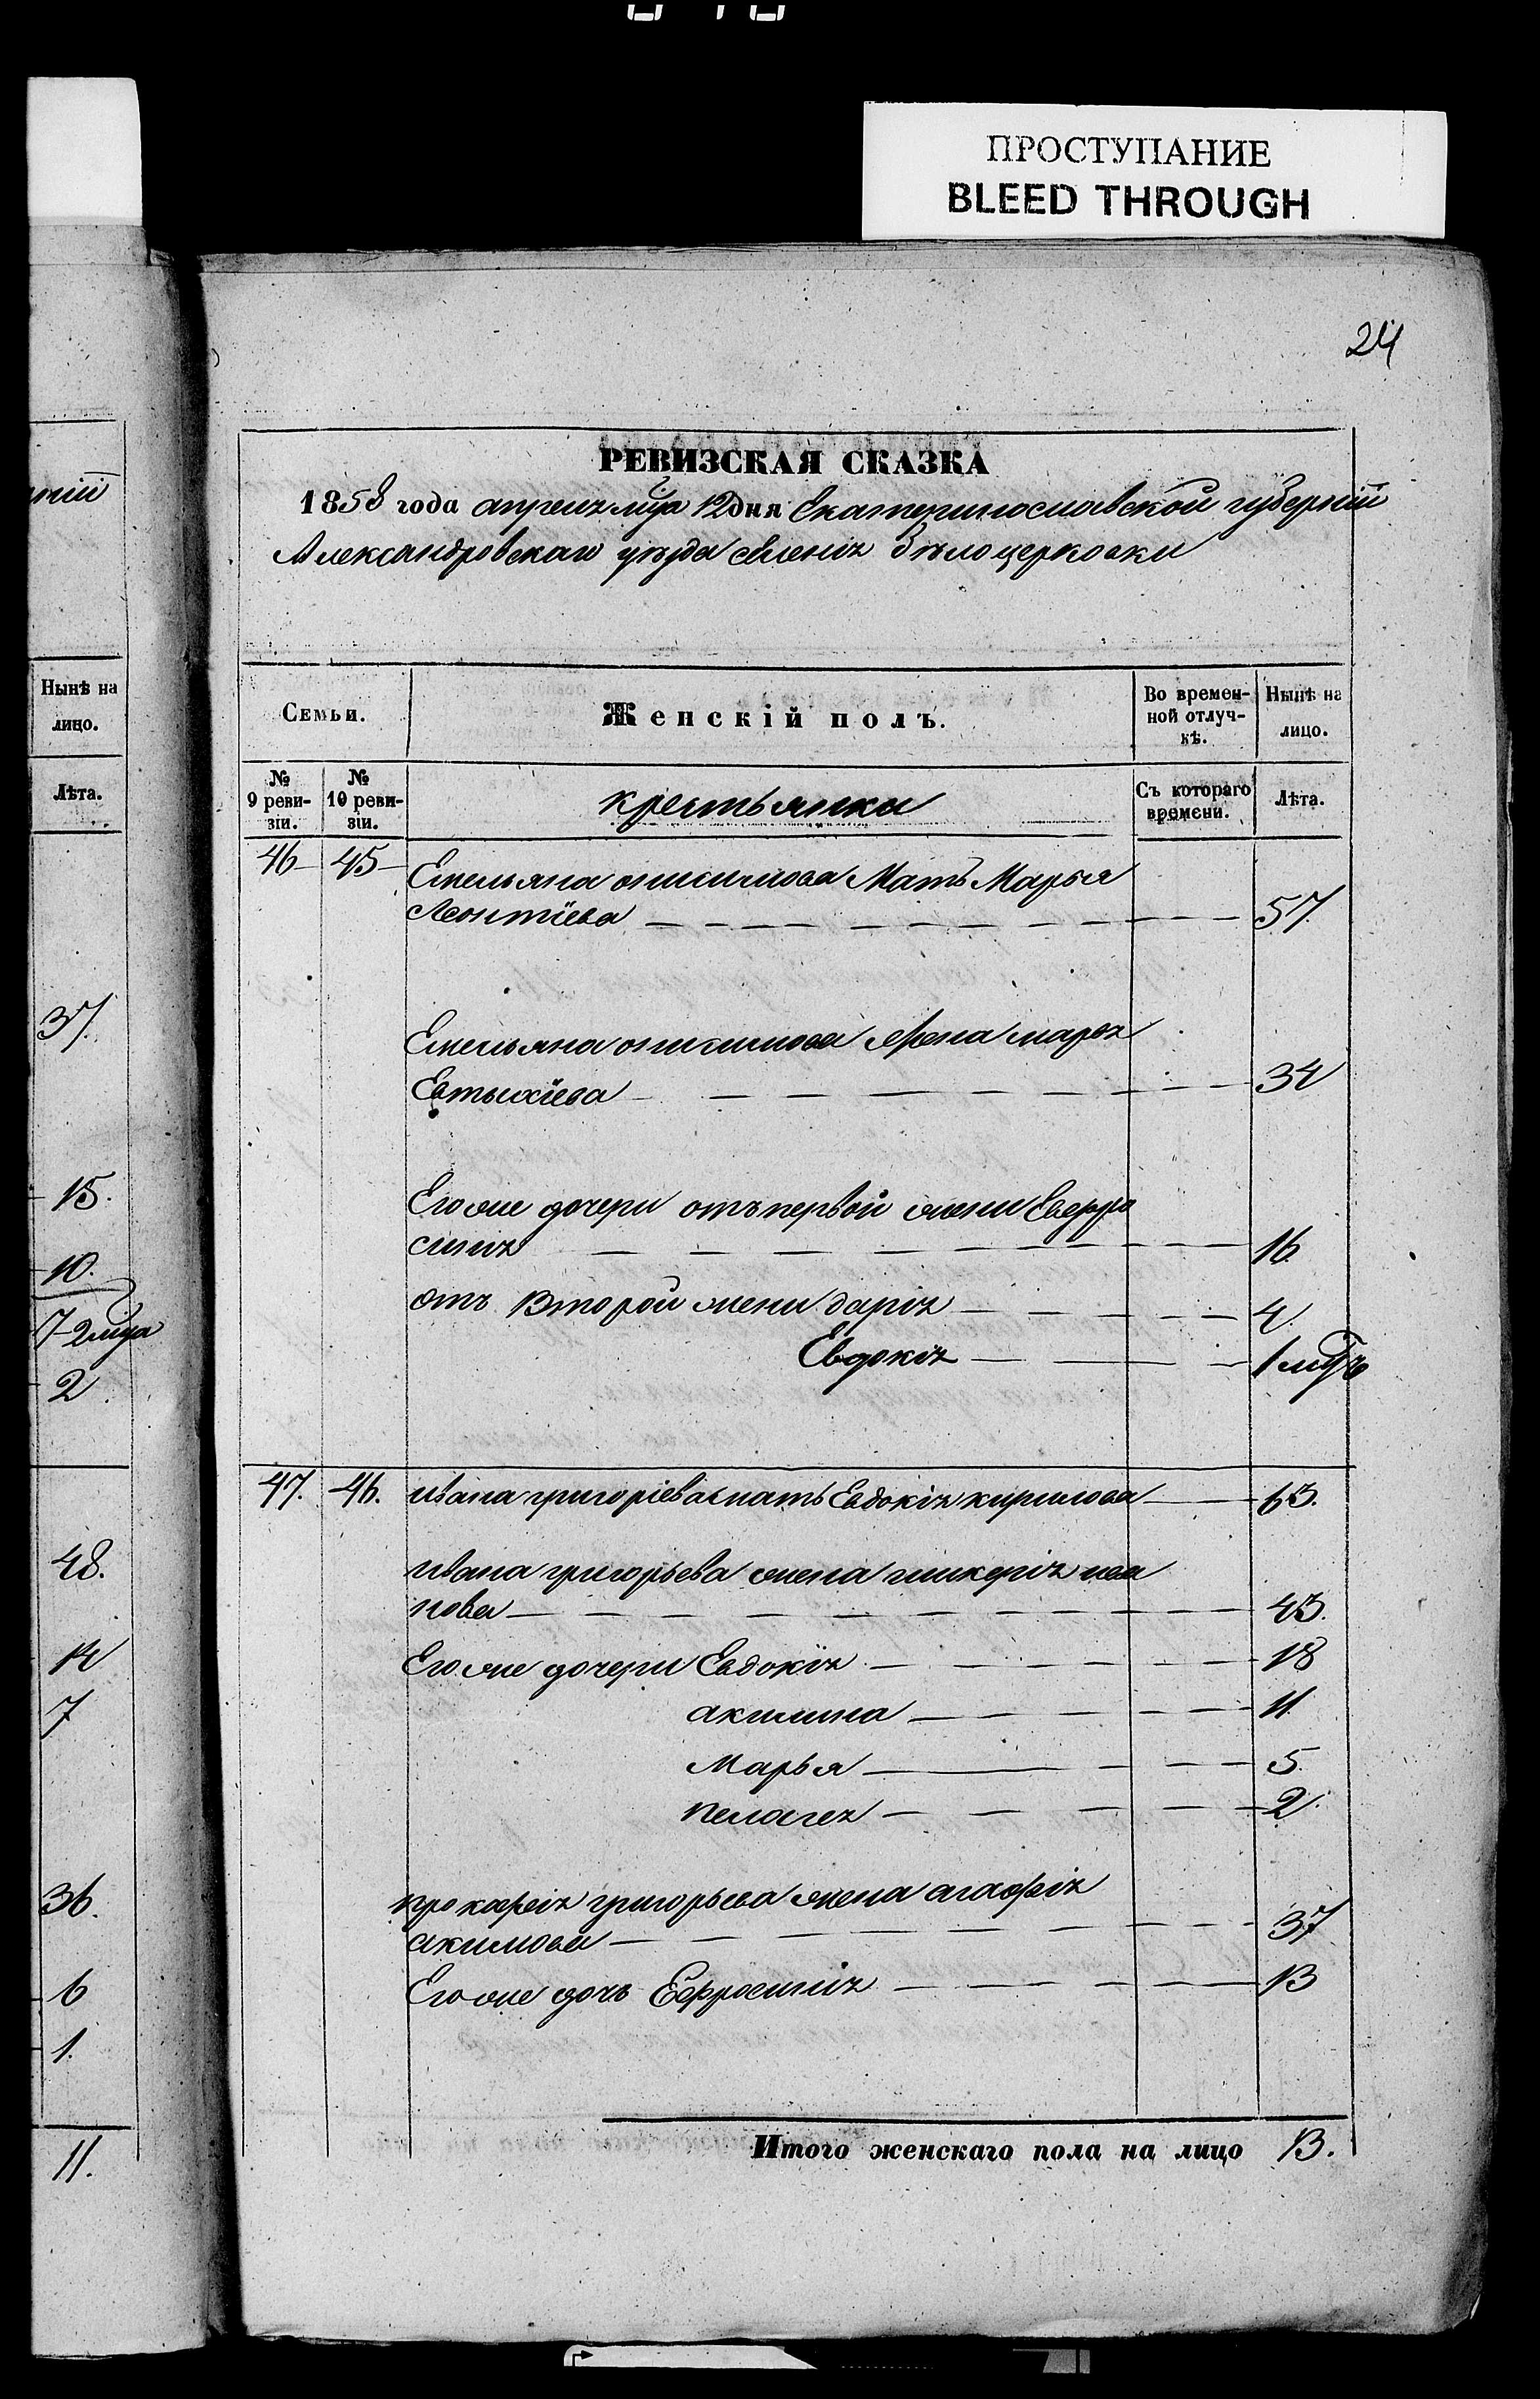 ПРОСТУПАНИЕ
BLEED THROUGH
24
РЕВИЗСКАЯ СКАЗКА
1858 года апреля мца 12 дня Екатеринославской губерніи
Александровскаго уѣзда селенія Бѣлоцерковки
Семьи. Женскій полъ. Во времен-ной отлуч-кѣ. Нынѣ на лицо.
№ 9 реви-зіи. № 10 реви-зіи. крестьянки Съ котораго времени. Лѣта.
46 45 Емельяна онисимова Мать Марья
Леонтіева 57
Емельяна онисимова жена марья
Евтыхіева 34
Его же дочери отъ первой жени Евфро
синия 16
отъ Второй жени дарія 4
Евдокія 1 мцъ
47. 46. ивана григоріева мать Евдокія кирилова 65.
ивана григорьева жена гликерія ива
нова 45.
Его же дочери Евдокія 18
акилина 11
Марья 5.
пелагея 2
прокофія григорьева жена агафія
акимова 37
Его же дочь Ефросинія 13
Итого женскаго пола на лицо 13.
ніи
Нынѣ на
лицо.
Лѣта.
37.
15.
10.
7-2 мца
2
48.
14
7
36.
6
1.
11.